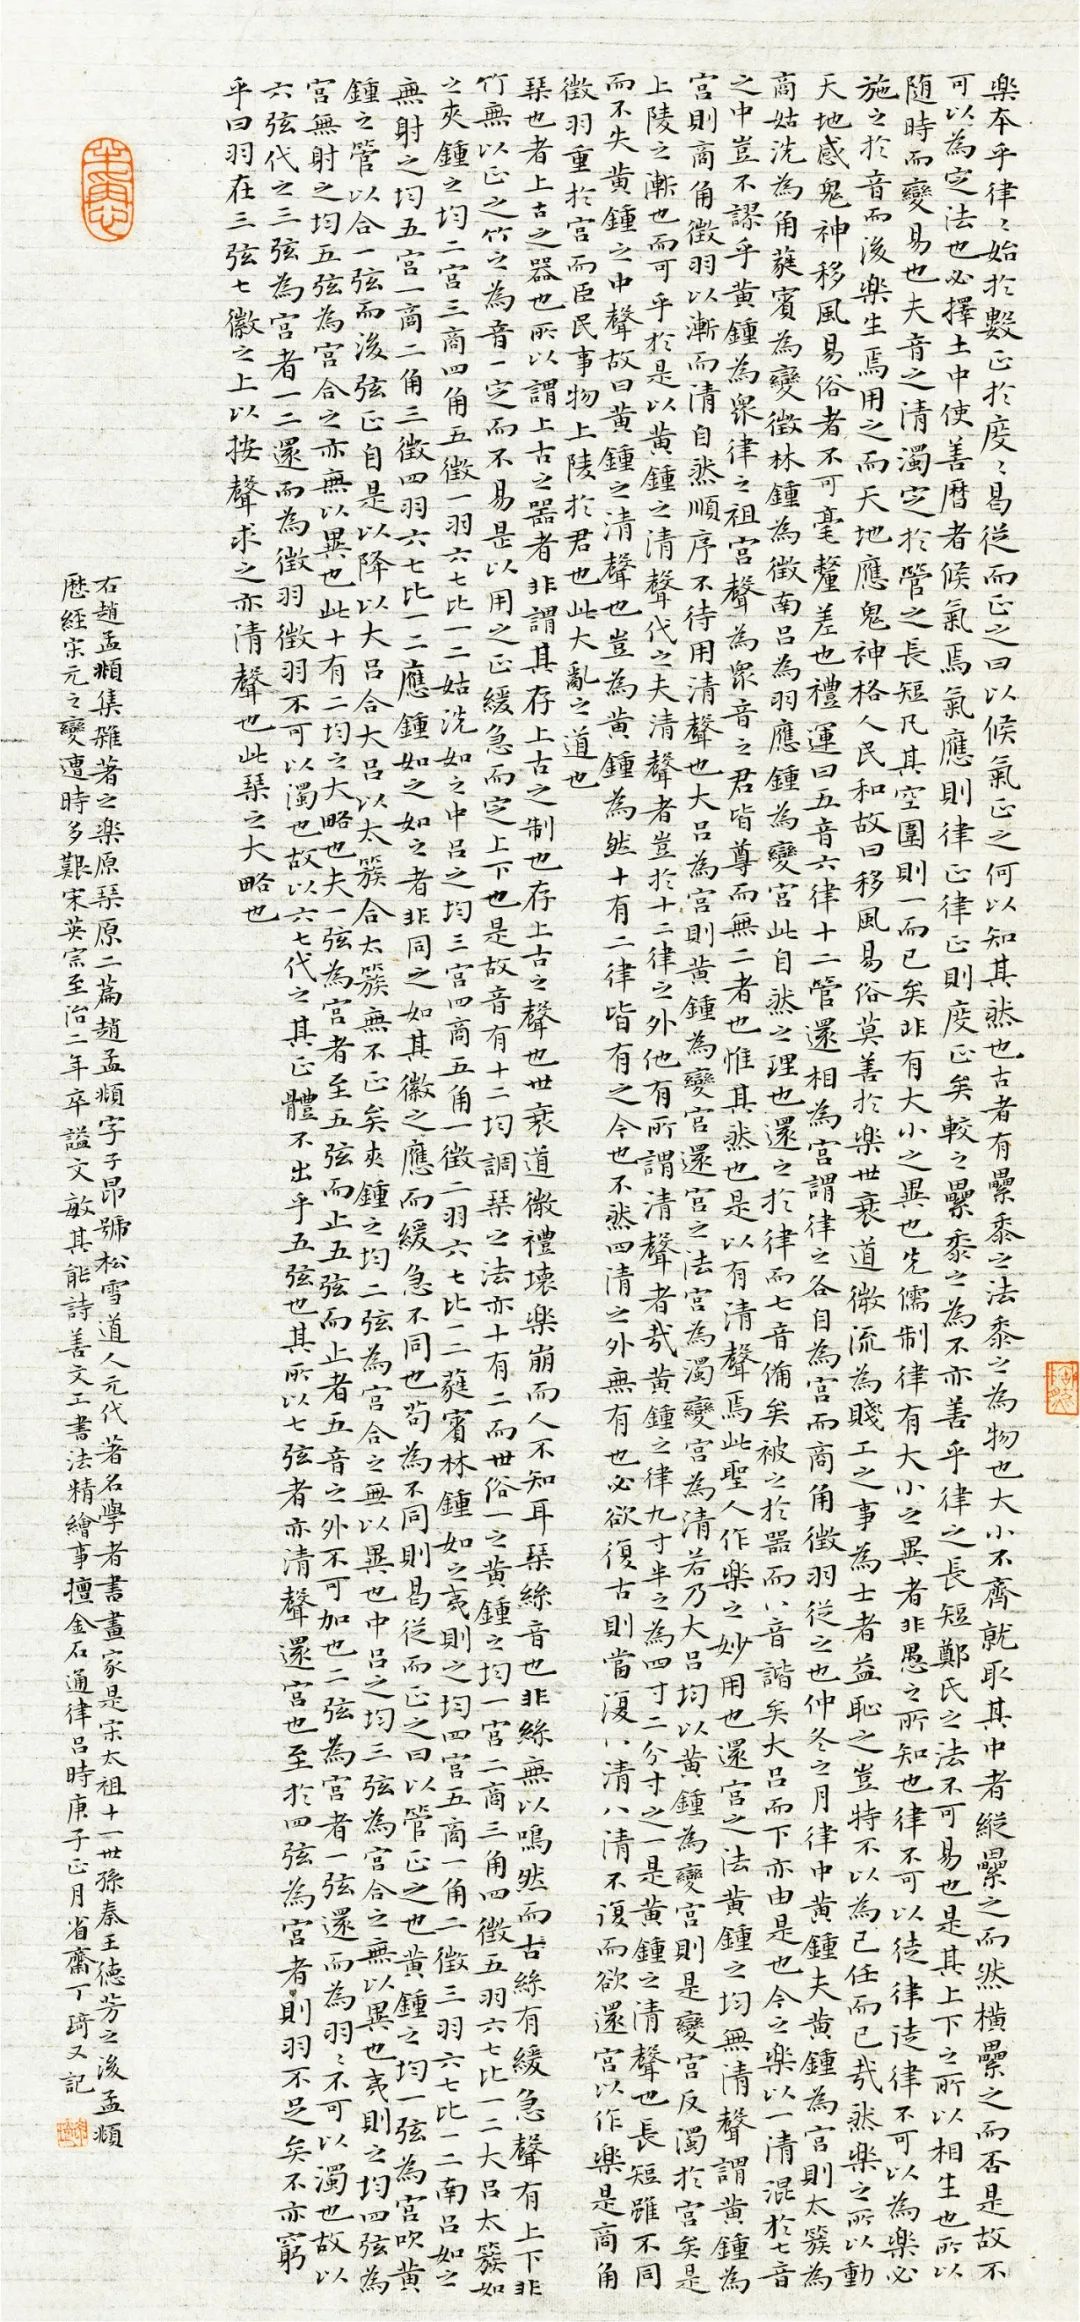 樂本乎律〻始於數正於度〻曷從而正之曰以候氣正之何以知其然也古者有纍黍之法黍之為物也大小不齊就取其中者縱纍之而然橫纍之而否是故不
可以為定法也必擇土中使善曆者候氣焉氣應則律正律正則度正矣較之纍黍之為不亦善乎律之長短鄭氏之法不可易也是其上下之所以相生也所以
随時而變易也夫音之清濁定於管之長短凡其空圍則一而已矣非有大小之異也先儒制律有大小之異者非愚之所知也律不可以徒律徒律不可以為樂必
施之於音而後樂生焉用之而天地應鬼神格人民和故曰移風易俗莫善於樂世衰道微流為賤工之事為士者益恥之豈特不以為己任而已哉然樂之所以動
天地感鬼神移風易俗者不可毫釐差也禮運曰五音六律十二管還相為宮謂律之各自為宮而商角徵羽從之也仲冬之月律中黃鍾夫黃鍾為宮則太簇為
商姑洗為角蕤賓為變徵林鍾為徵南呂為羽應鍾為變宮此自然之理也還之於律而七音備矣被之於器而八音諧矣大呂而下亦由是也今之樂以一清混於七音
之中豈不謬乎黃鍾為衆律之祖宮聲為衆音之君皆尊而無二者也惟其然也是以有清聲焉此聖人作樂之妙用也還宮之法黃鍾之均無清聲謂黃鍾為
宮則商角徵羽以漸而清自然順序不待用清聲也大呂為宮則黃鍾為變宮還宮之法宮為濁變宮為清若乃大呂均以黃鍾為變宮則是變宮反濁於宮矣是
上陵之漸也而可乎於是以黃鍾之清聲代之夫清聲者豈於十二律之外他有所謂清聲者哉黃鍾之律九寸半之為四寸二分寸之一是黃鍾之清聲也長短雖不同
而不失黃鍾之中聲故曰黃鍾之清聲也豈為黃鍾為然十有二律皆有之今也不然四清之外無有也必欲復古則當復八清八清不復而欲還宮以作樂是商角
徵羽重於宮而臣民事物上陵於君也此大亂之道也
琹也者上古之器也所以謂上古之器者非謂其存上古之制也存上古之聲也世衰道微禮壞樂崩而人不知耳琹絲音也非絲無以鳴然而古絲有緩急聲有上下非
竹無以正之竹之為音一定而不易是以用之正緩急而定上下也是故音有十二均調琹之法亦十有二而世俗一之黃鍾之均一宮二商三角四徵五羽六七比一二大呂太簇如
之夾鍾之均二宮三商四角五徵一羽六七比一二姑洗如之中呂之均三宮四商五角一徵二羽六七比一二蕤賓林鍾如之夷則之均四宮五商一角二徵三羽六七比一二南呂如之
無射之均五宮一商二角三徵四羽六七比一二應鍾如之如之者非同之如其徽之應而緩急不同也苟為不同則曷從而正之曰以管正之也黃鍾之均一弦為宮吹黃
鍾之管以合一弦而後弦正自是以降以大呂合大呂以太簇合太簇無不正矣夾鍾之均二弦為宮合之無以異也中呂之均三弦為宮合之無以異也夷則之均四弦為
宮無射之均五弦為宮合之亦無以異也此十有二均之大略也夫一弦為宮者至五弦而止五弦而止者五音之外不可加也二弦為宮者一弦還而為羽〻不可以濁也故以
六弦代之三弦為宮者一二還而為徵羽徵羽不可以濁也故以六七代之其正體不出乎五弦也其所以七弦者亦清聲還宮也至於四弦為宮者則羽不足矣不亦窮
乎曰羽在三弦七徽之上以按聲求之亦清聲也此琹之大略也
右趙孟頫集雜著之樂原琹原二篇趙孟頫字子昂號松雪道人元代著名學者書畫家是宋太祖十一世孫秦王德芳之後孟頫
歷經宋元之變遭時多艱宋英宗至治二年卒謚文敏其能詩善文工書法精繪事擅金石通律呂時庚子正月省齋丁琦又記